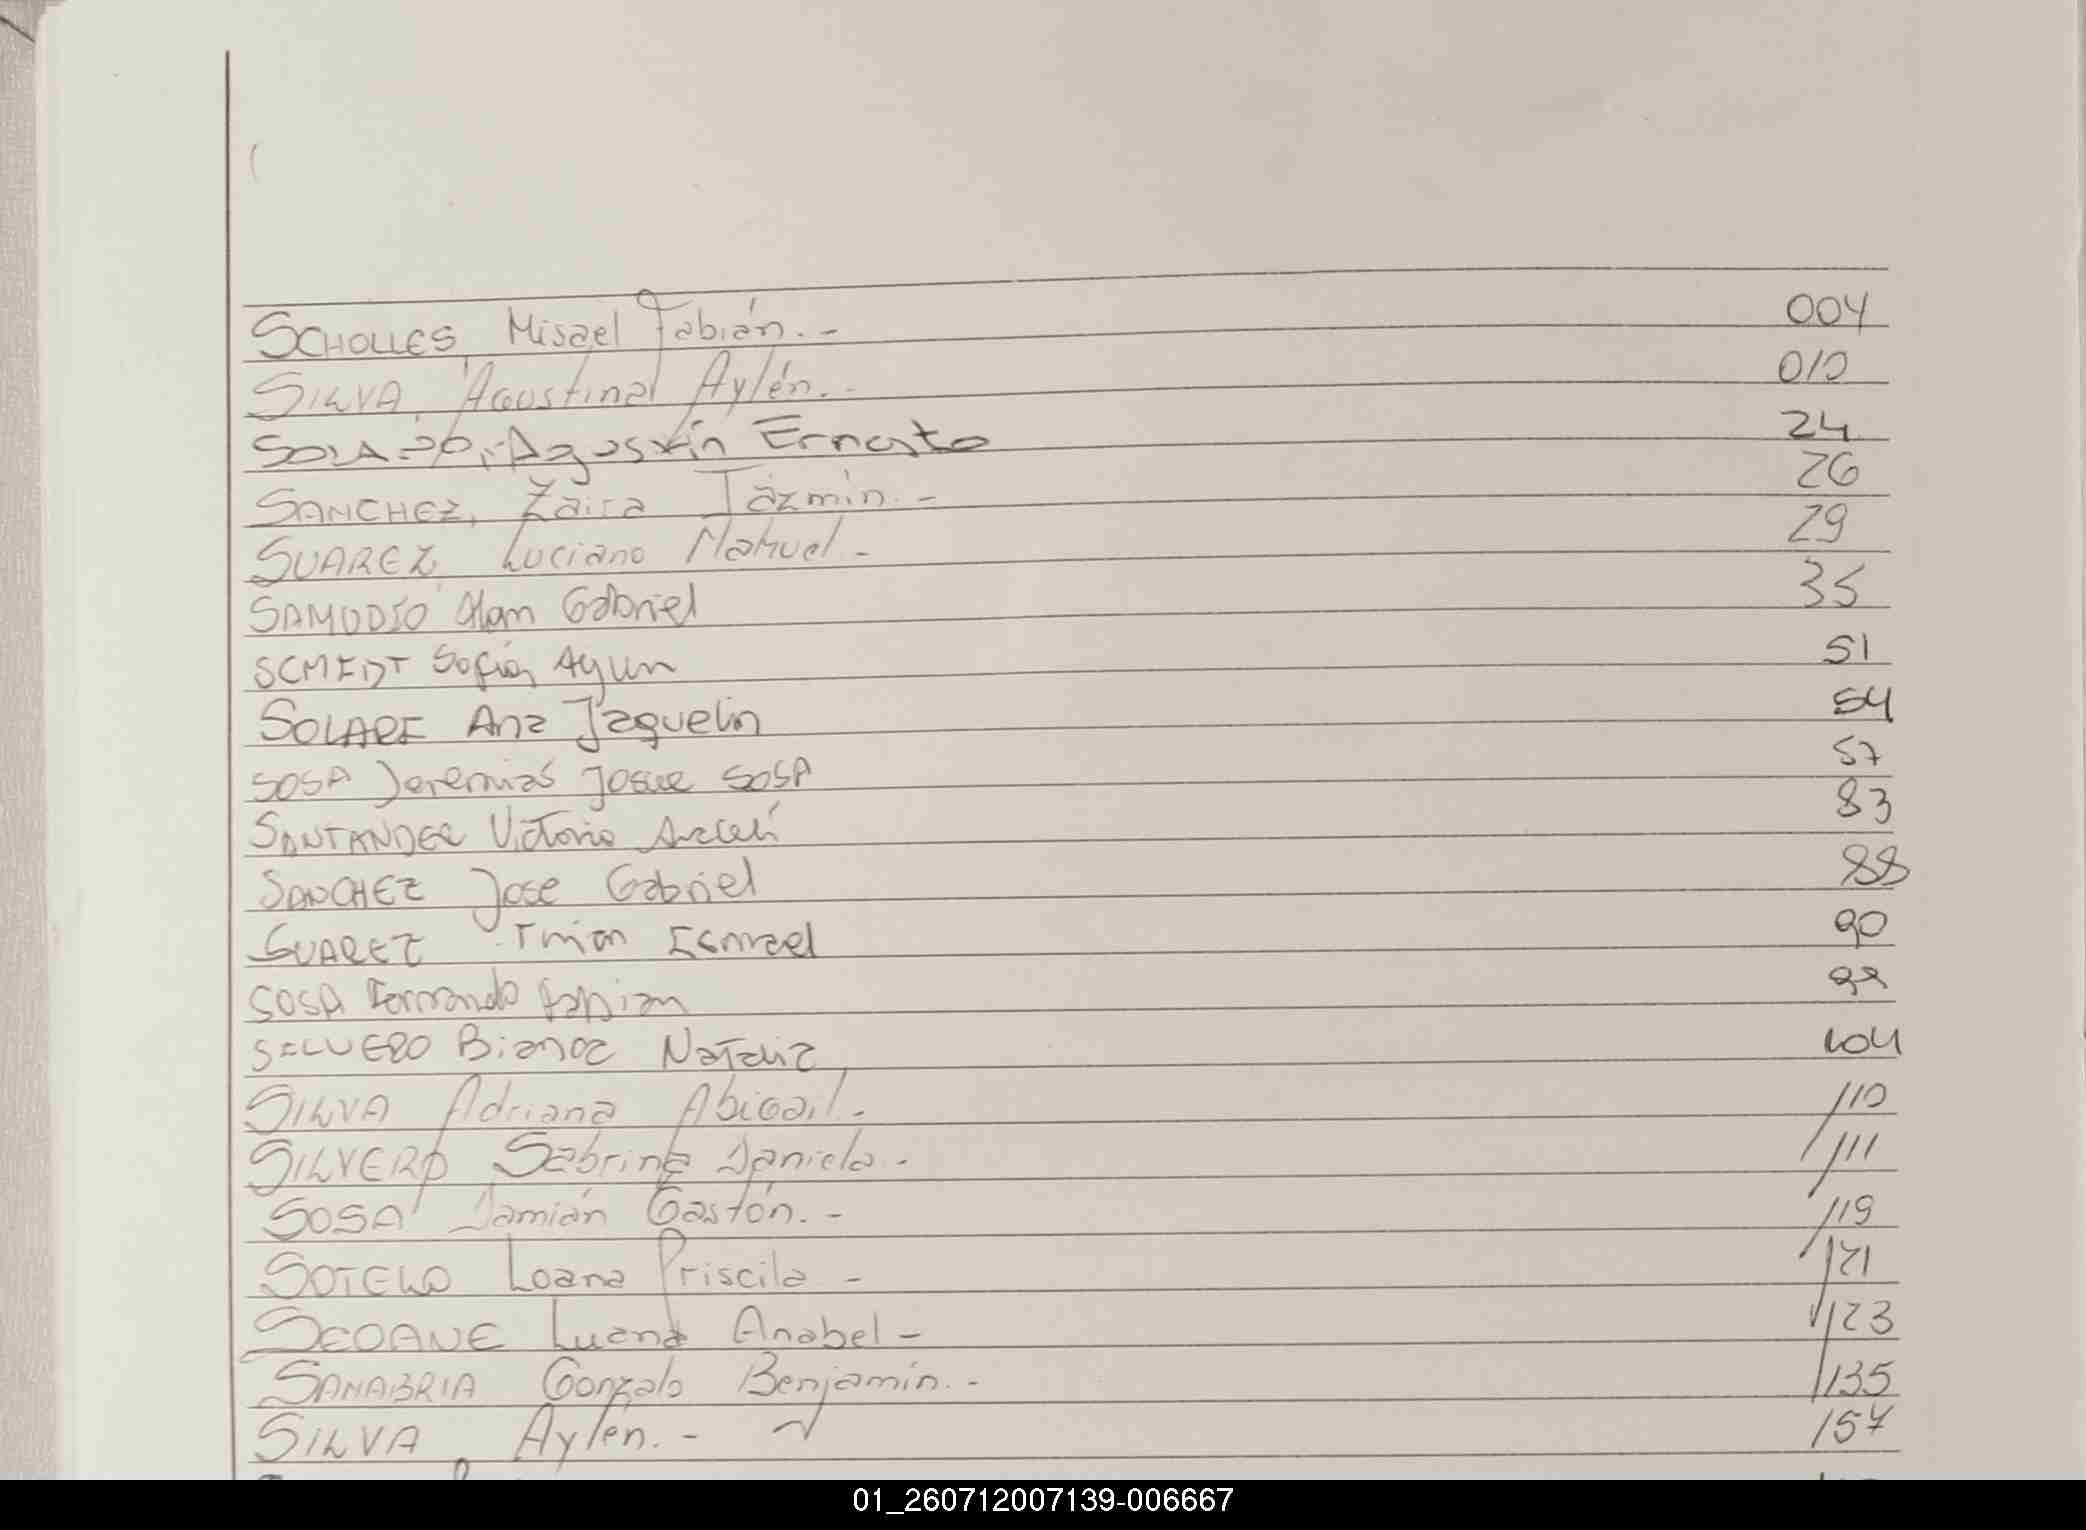 SCHOLLES, Misael Fabián.- 004
SILVA, Agustina Aylén.- 010
Agustín Ernesto 24
SANCHEZ, Zaira Jázmin.- 26
SUAREZ, Luciano Nahuel.- 29
SAMUDIO Alan Gabriel 35
SCMIDT Sofía Aylin 51
SOLARI Ana Jaquelin 54
SOSA Jeremias Josue SOSA 57
SANTANDER Victoria Araceli 83
SANCHEZ Jose Gabriel 88
SUAREZ Ismael 90
SOSA Fernando Fabian
SILVERO Bianca Natalia 104
SILVA Adriana Abigail.- 110
SILVERO Sabrina Daniela.- 111
SOSA Damián Gastón.- 119
SOTELO Loana Priscila - 121
SEOANE Luana Anabel - 123
SANABRIA Gonzalo Benjamín.- 135
SILVA Aylén.- 157
01_260712007139-006667